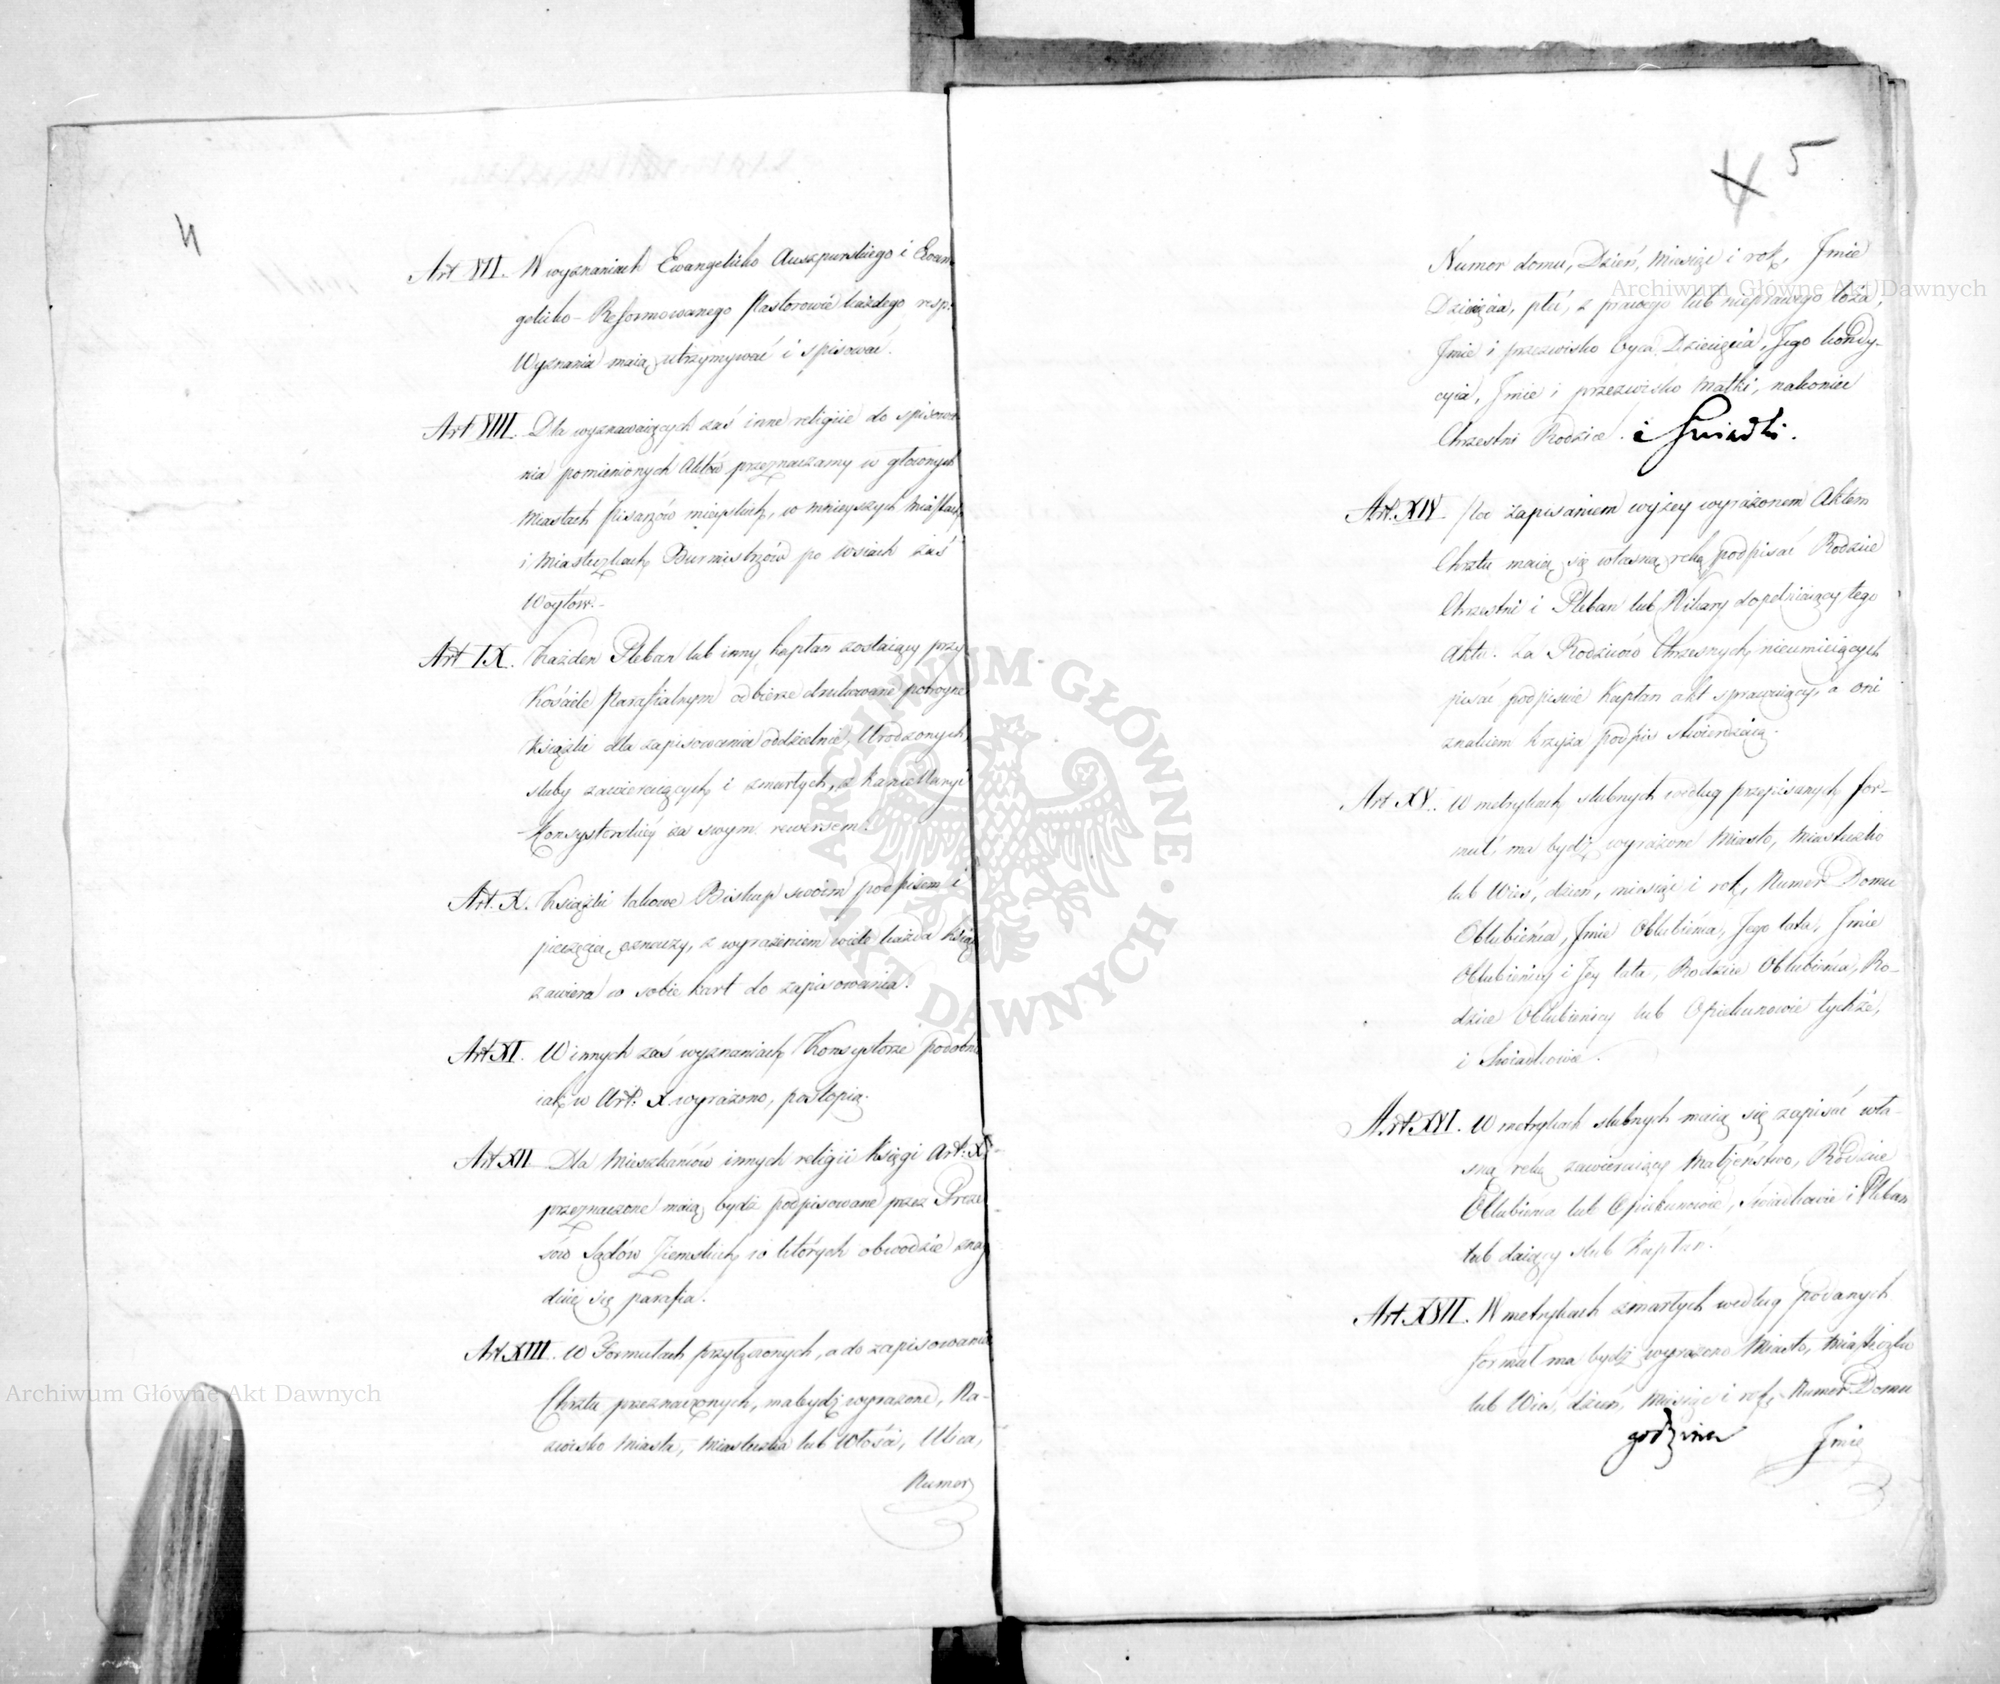 4
Art VII. W wyznaniach Ewangelicko Auszpurskiego i Ewan
gelicko-Reformowanego Pastorowie każdego resp:
Wyznania maią utrzymywać i spisować.
Art VIII. Dla wyznawaiących zaś inne religiie do spisowa
nia pomienionych Aktów przeznaczamy w głównych
Miastach Pisarzów mieyskich, w mnieyszych Miastach
i Miasteczkach Burmistrzów po wsiach zaś
Woytów.-
Art IX. Każden Pleban lub inny kapłan zostaiący przy
Kościele Parafialnym odbierze drukowane potroyne
Książki dla zapisowania oddzielnie, Urodzonych,
sluby zawieraiących i zmarłych, z Kancellaryi
Konsystorskiéy za swym rewersem.
Art. X. Książki takowe Biskup swoim podpisem i
pieczęcią oznaczy, z wyrażeniem wiele każda Księga
zawiera w sobie kart do zapisowania.
Art XI. W innych zaś wyznaniach Konsystorze podobnie
iak w Art: X wyrażono, postąpią.
Art XII Dla Mieszkańców innych religii Księgi Art: X
przeznaczone maią bydź podpisowane przez Preze
sów Sądów Ziemskich, w których obwodzie znay
duie się parafia.
Art XIII. W Formułach przyłączonych, a do zapisowania
Chrztu przeznaczonych, ma bydź wyrażone, Na-
zwisko Miasta, Miasteczka lub Włości, Ulica,
Numer
4 5
Numer domu, Dzień, Miesiąc i rok, Jmie
Dziecięcia, płeć, z prawego lub nieprawego łoża,
Jmie i przezwisko Oyca Dziecięcia, Jego kondy-
cyia, Jmie i przezwisko Matki, nakoniec
Chrzestni Rodzice. i Swiadki.
Art. XIV Pod zapisaniem wyżey wyrażonem Aktem
Chrztu maią się własną ręką podpisać Rodzice
Chrzestni i Pleban lub Wikary dopełniaiący tego
Aktu. Za Rodziców Chrzesnych nieumieiących
pisać podpisze Kapłan akt sprawuiący, a oni
znakiem krzyża podpis stwierdzaią.
Art XV. W metrykach slubnych według przypisanych for-
muł, ma bydź wyrażone Miasto, Miasteczko
lub Wieś, dzień, miesiąc i rok, Numer Domu
Oblubieńca, Jmie Oblubieńca, Jego lata, Jmie
Oblubienicy i Jey lata, Rodzice Oblubieńca, Ro-
dzice Oblubienicy lub Opiekunowie tychże,
i Swiadkowie.
Art XVI. W metrykach slubnych maią się zapisać wła-
sną ręką zawieraiący Małżeństwo, Rodzice
Oblubieńca lub Opiekunowie, Swiadkowie i Pleban
lub daiący slub Kapłan.
Art XVII. W metrykach zmarłych według podanych
formuł ma bydź wyrażono Miasto, Miasteczko
lub Wieś, dzień, Miesiąc i rok, Numer Domu
godzina Jmie
Archiwum Główne Akt Dawnych
Archiwum Główne Akt Dawnych
ARCHIWUM GŁÓWNE · AKT DAWNYCH ·